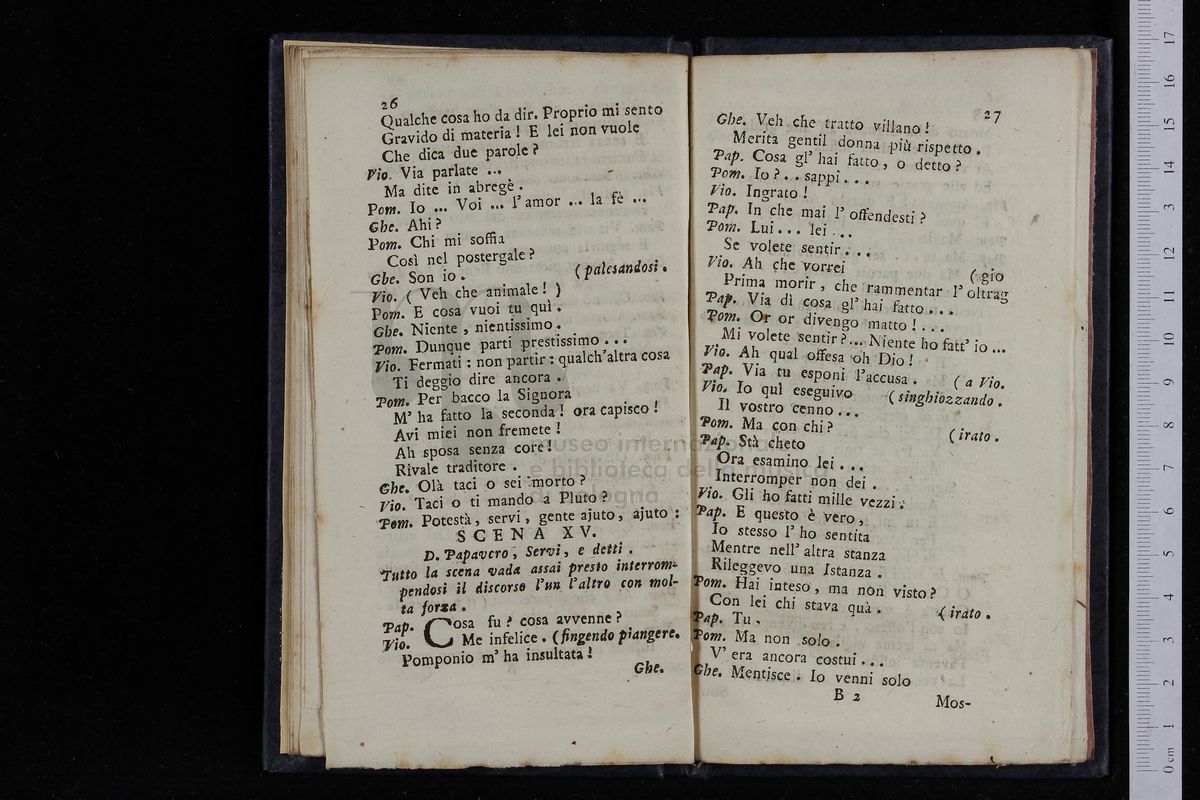 26
Qualche cosa ho da dir. Proprio mi sento
Gravido di materia! E lei non vuole
Che dica due parole?
Vio. Via parlate ...
Ma dite in abregè.
Pom. Io ... Voi ... l'amor ... la fè ...
Ghe. Ahi?
Pom. Chi mi soffia
Così nel postergale?
Ghe. Son io. (palesandosi.
Vio. ( Veh che animale! )
Pom. E cosa vuoi tu quì.
Ghe. Niente, nientissimo.
Pom. Dunque parti prestissimo...
Vio. Fermati: non partir: qualch'altra cosa
Ti deggio dire ancora.
Pom. Per bacco la Signora
M'ha fatto la seconda! ora capisco!
Avi miei non fremete!
Ah sposa senza core!
Rivale traditore.
Ghe. Olà taci o sei morto?
Vio. Taci o ti mando a Pluto?
Pom. Potestà, servi, gente ajuto, ajuto:
SCENA XV.
D. Papavero, Servi, e detti.
Tutto la scena vada assai presto interrom-
pendosi il discorso l'un l'altro con mol-
ta forza.
Pap. Cosa fu? cosa avvenne?
Vio. Me infelice. (fingendo piangere.
Pomponio m'ha insultata!
Ghe.
27
Ghe. Veh che tratto villano!
Merita gentil donna più rispetto.
Pap. Cosa gl'hai fatto, o detto?
Pom. Io?.. sappi...
Vio. Ingrato!
Pap. In che mai l'offendesti?
Pom. Lui... lei...
Se volete sentir...
Vio. Ah che vorrei (gio
Prima morir, che rammentar l'oltrag
Pap. Via dì cosa gl'hai fatto...
Pom. Or or divengo matto!...
Mi volete sentir?... Niente ho fatt'io...
Vio. Ah qual offesa oh Dio!
Pap. Via tu esponi l'accusa. (a Vio.
Vio. Io quì eseguivo (singhiozzando.
Il vostro cenno...
Pom. Ma con chi?
Pap. Stà cheto (irato.
Ora esamino lei...
Interromper non dei.
Vio. Gli ho fatti mille vezzi:
Pap. E questo è vero,
Io stesso l'ho sentita
Mentre nell'altra stanza
Rileggevo una Istanza.
Pom. Hai inteso, ma non visto?
Con lei chi stava quà.
Pap. Tu. (irato.
Pom. Ma non solo.
V'era ancora costui...
Ghe. Mentisce. Io venni solo
B 2
Mos-
museo internazionale
e biblioteca della musica
di bologna
0 cm 1 2 3 4 5 6 7 8 9 10 11 12 3 14 15 16 17